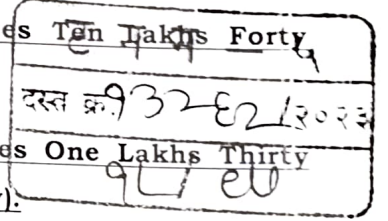 es Ten Lakhs Forty
दस्त क्र. १३२६२/२०२३
es One Lakhs Thirty
).